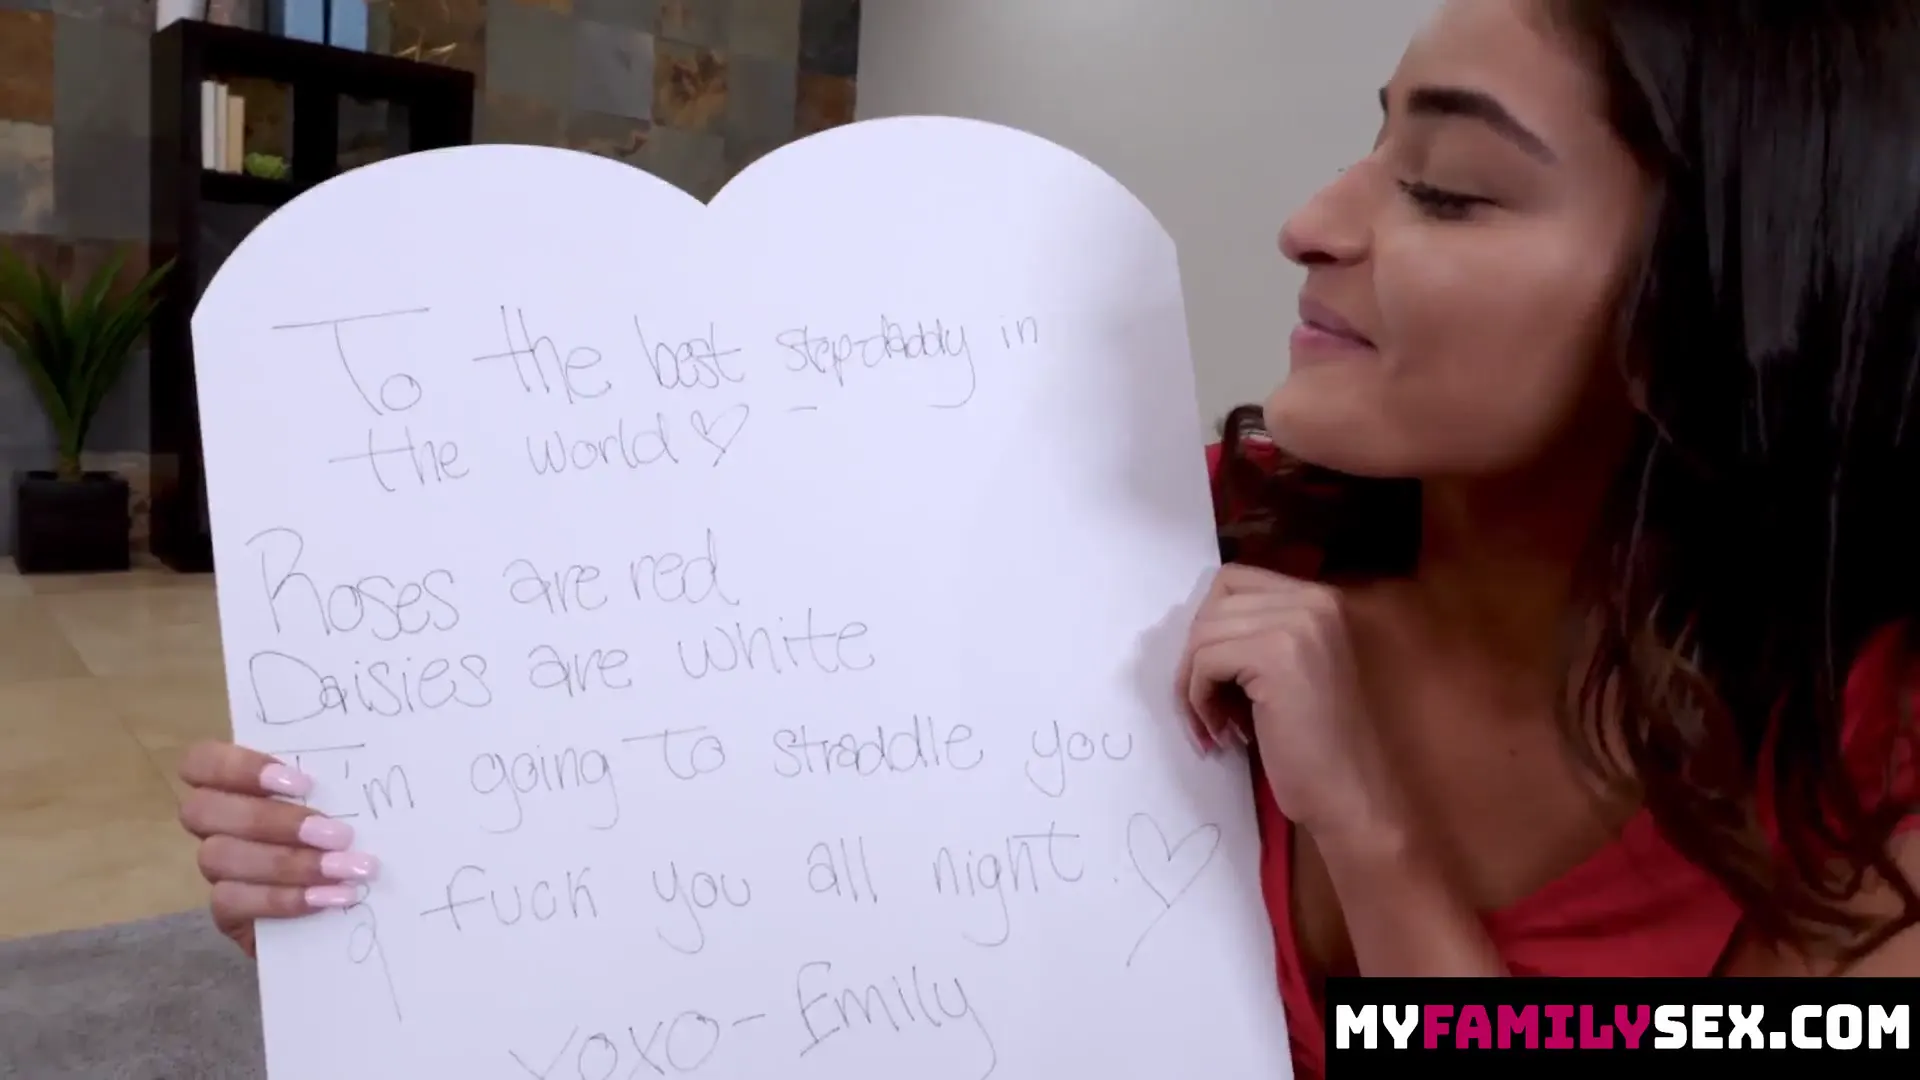 To the best stepdaddy in
the world
Roses are red
Daisies are white
I'm going to straddle you
& fuck you all night.
xoxo - Emily
MYFAMILYSEX.COM